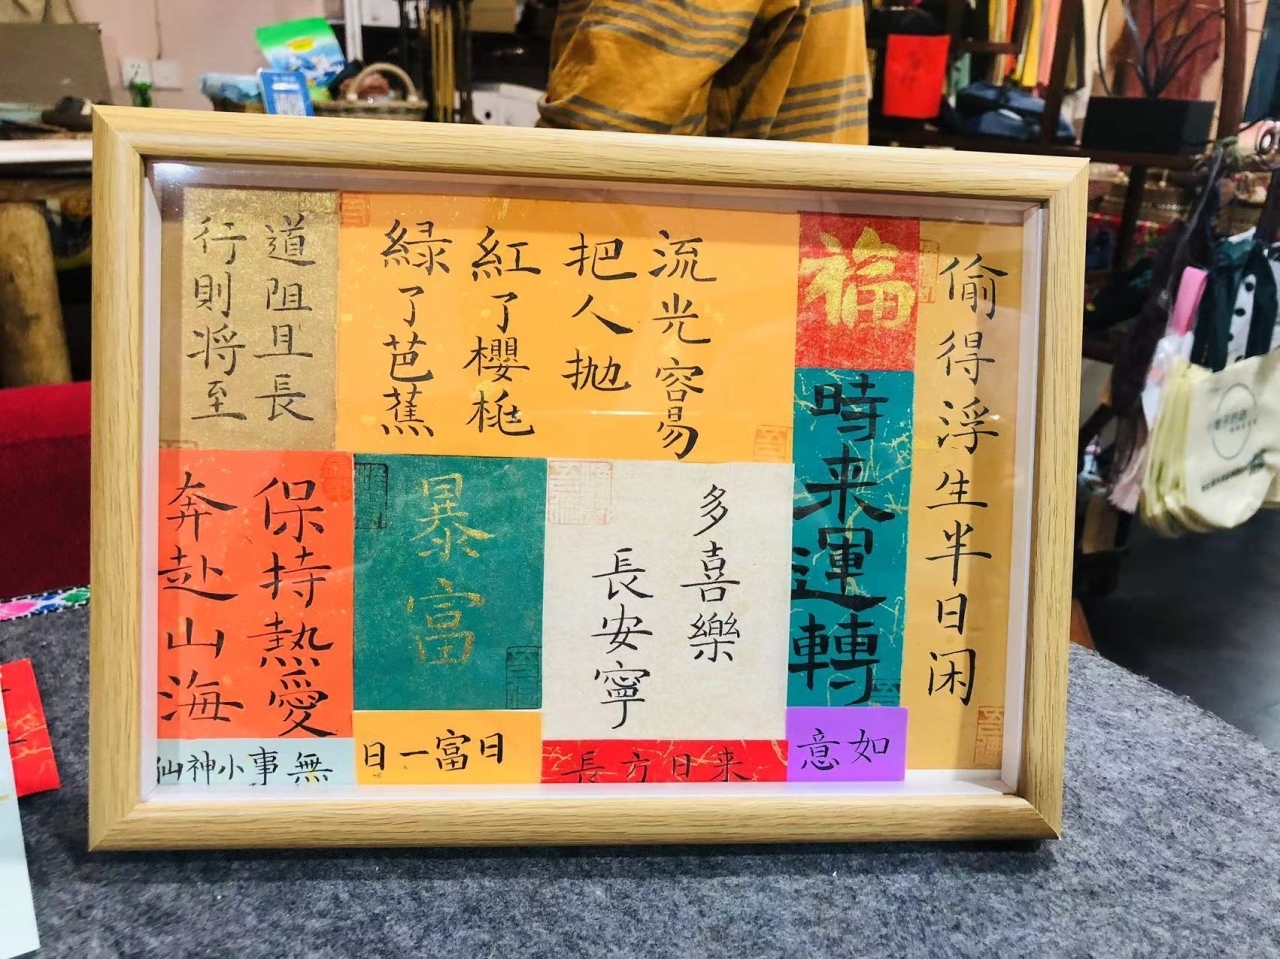 偷得浮生半日闲
福
時来運轉
如意
流光容易
把人抛
紅了櫻桃
緑了芭蕉
多喜樂
長安寧
来日方長
暴富
日富一日
道阻且長
行則将至
保持熱愛
奔赴山海
無事小神仙